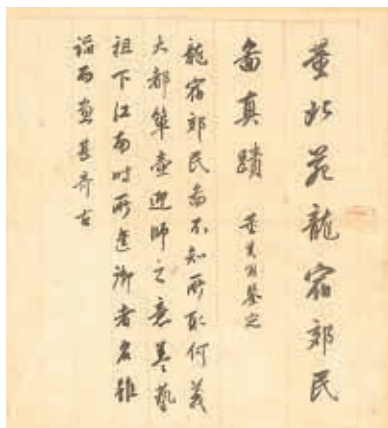 董北苑龍宿郊民
啚真蹟 董其昌鑒定
龍宿郊民啚不知所取何義
大都簞壺迎師之意蓋藝
祖下江南時所進御者名雖
謟而畫甚奇古